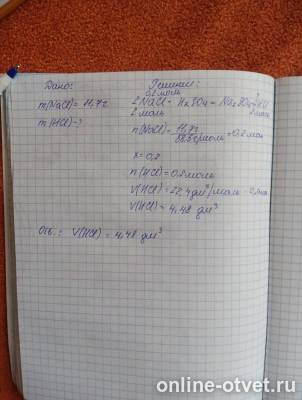 Дано:
Решение:
m(NaCl) = 11,7г
0,2моль
2NaCl + H₂SO₄ = Na₂SO₄ + 2HCl
2 моль
2 моль
m(HCl) - ?
n(NaCl) = 11,7г / 58,5г/моль = 0,2 мол
x = 0,2
n(HCl) = 0,2моль
V(HCl) = 22,4 дм³/моль ·
V(HCl) = 4,48 дм³
Отв.: V(HCl) = 4,48 дм³
online-otvet.ru